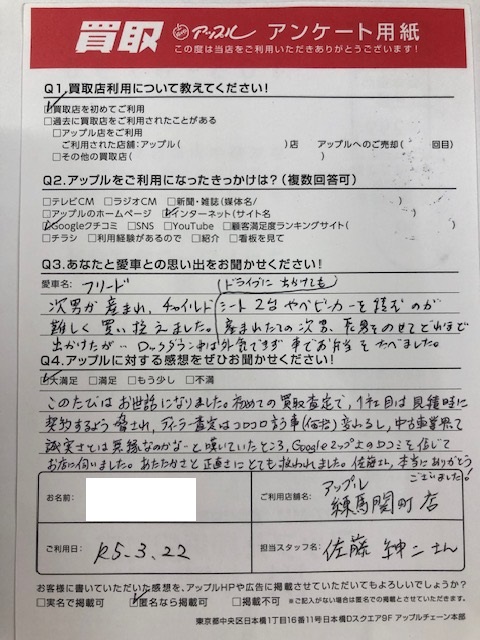 買取 アップル アンケート用紙
この度は当店をご利用いただきありがとうございます!
Q1.買取店利用について教えてください!
☑買取店を初めてご利用
□過去に買取店をご利用されたことがある
□アップル店をご利用
ご利用された店舗:アップル( )店 アップルへのご売却( 回目)
□その他の買取店( )
Q2.アップルをご利用になったきっかけは?(複数回答可)
□テレビCM □ラジオCM □新聞・雑誌(媒体名/ )
□アップルのホームページ ☑インターネット(サイト名 )
☑Google口コミ □SNS □YouTube □顧客満足度ランキングサイト( )
□チラシ □利用経験があるので □紹介 □看板を見て
Q3.あなたと愛車との思い出をお聞かせください!
愛車名: フリード
ドライブに出かけても
次男が産まれ、チャイルドシート2台やベビーカーを積むのが
難しく買い換えました。産まれたての次男、長男をのせてどれほど
出かけたか… ロックダウン中は外食できず車でお弁当をたべました。
Q4.アップルに対する感想をぜひお聞かせください!
☑大満足 □満足 □もう少し □不満
このたびはお世話になりました。初めての買取査定で、1社目は見積時に
契約するよう脅され、ディーラー査定はコロコロ言う事(価格)変わるし、中古車業界て
誠実さとは無縁なのかなーと嘆いていたところ、Googleマップ上の口コミを信じて
お店に伺いました。あたたかさと正直さにとても救われました。佐藤さん、本当にありがとう
ございました!
お名前:
ご利用店舗名: アップル
練馬関町店
ご利用日: R5.3.22
担当スタッフ名: 佐藤紳二さん
お客様に書いていただいた感想を、アップルHPや広告に掲載させていただいてもよろしいでしょうか?
□実名で掲載可 ☑匿名なら掲載可 □掲載不可 ※ご記入がない場合は匿名での掲載とさせていただきます。
東京都中央区日本橋1丁目16番11号日本橋Dスクエア9F アップルチェーン本部